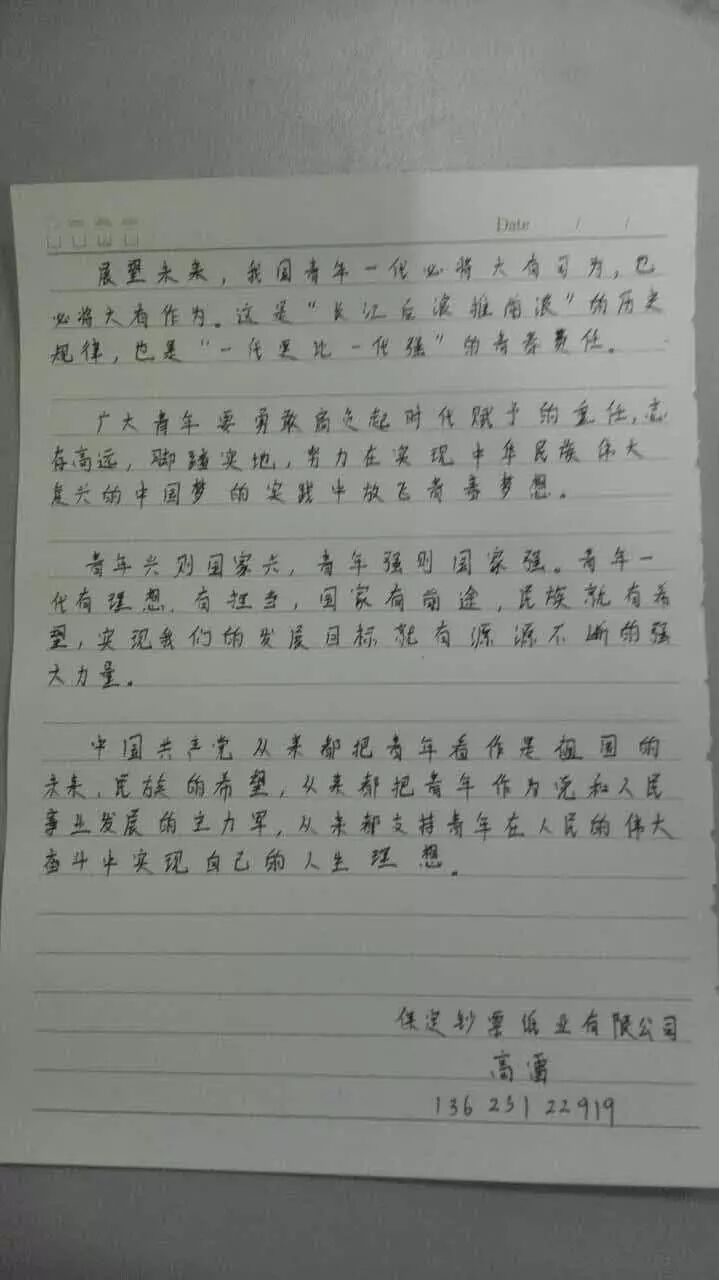 Date / /
展望未来，我国青年一代必将大有可为，也
必将大有作为。这是“长江后浪推前浪”的历史
规律，也是“一代更比一代强”的青春责任。
广大青年要勇敢肩负起时代赋予的重任，志
存高远，脚踏实地，努力在实现中华民族伟大
复兴的中国梦的实践中放飞青春梦想。
青年兴则国家兴，青年强则国家强。青年一
代有理想、有担当，国家有前途，民族就有希
望，实现我们的发展目标就有源源不断的强
大力量。
中国共产党从来都把青年看作是祖国的
未来、民族的希望，从来都把青年作为党和人民
事业发展的主力军，从来都支持青年在人民的伟大
奋斗中实现自己的人生理想。
保定钞票纸业有限公司
高雷
13623122919